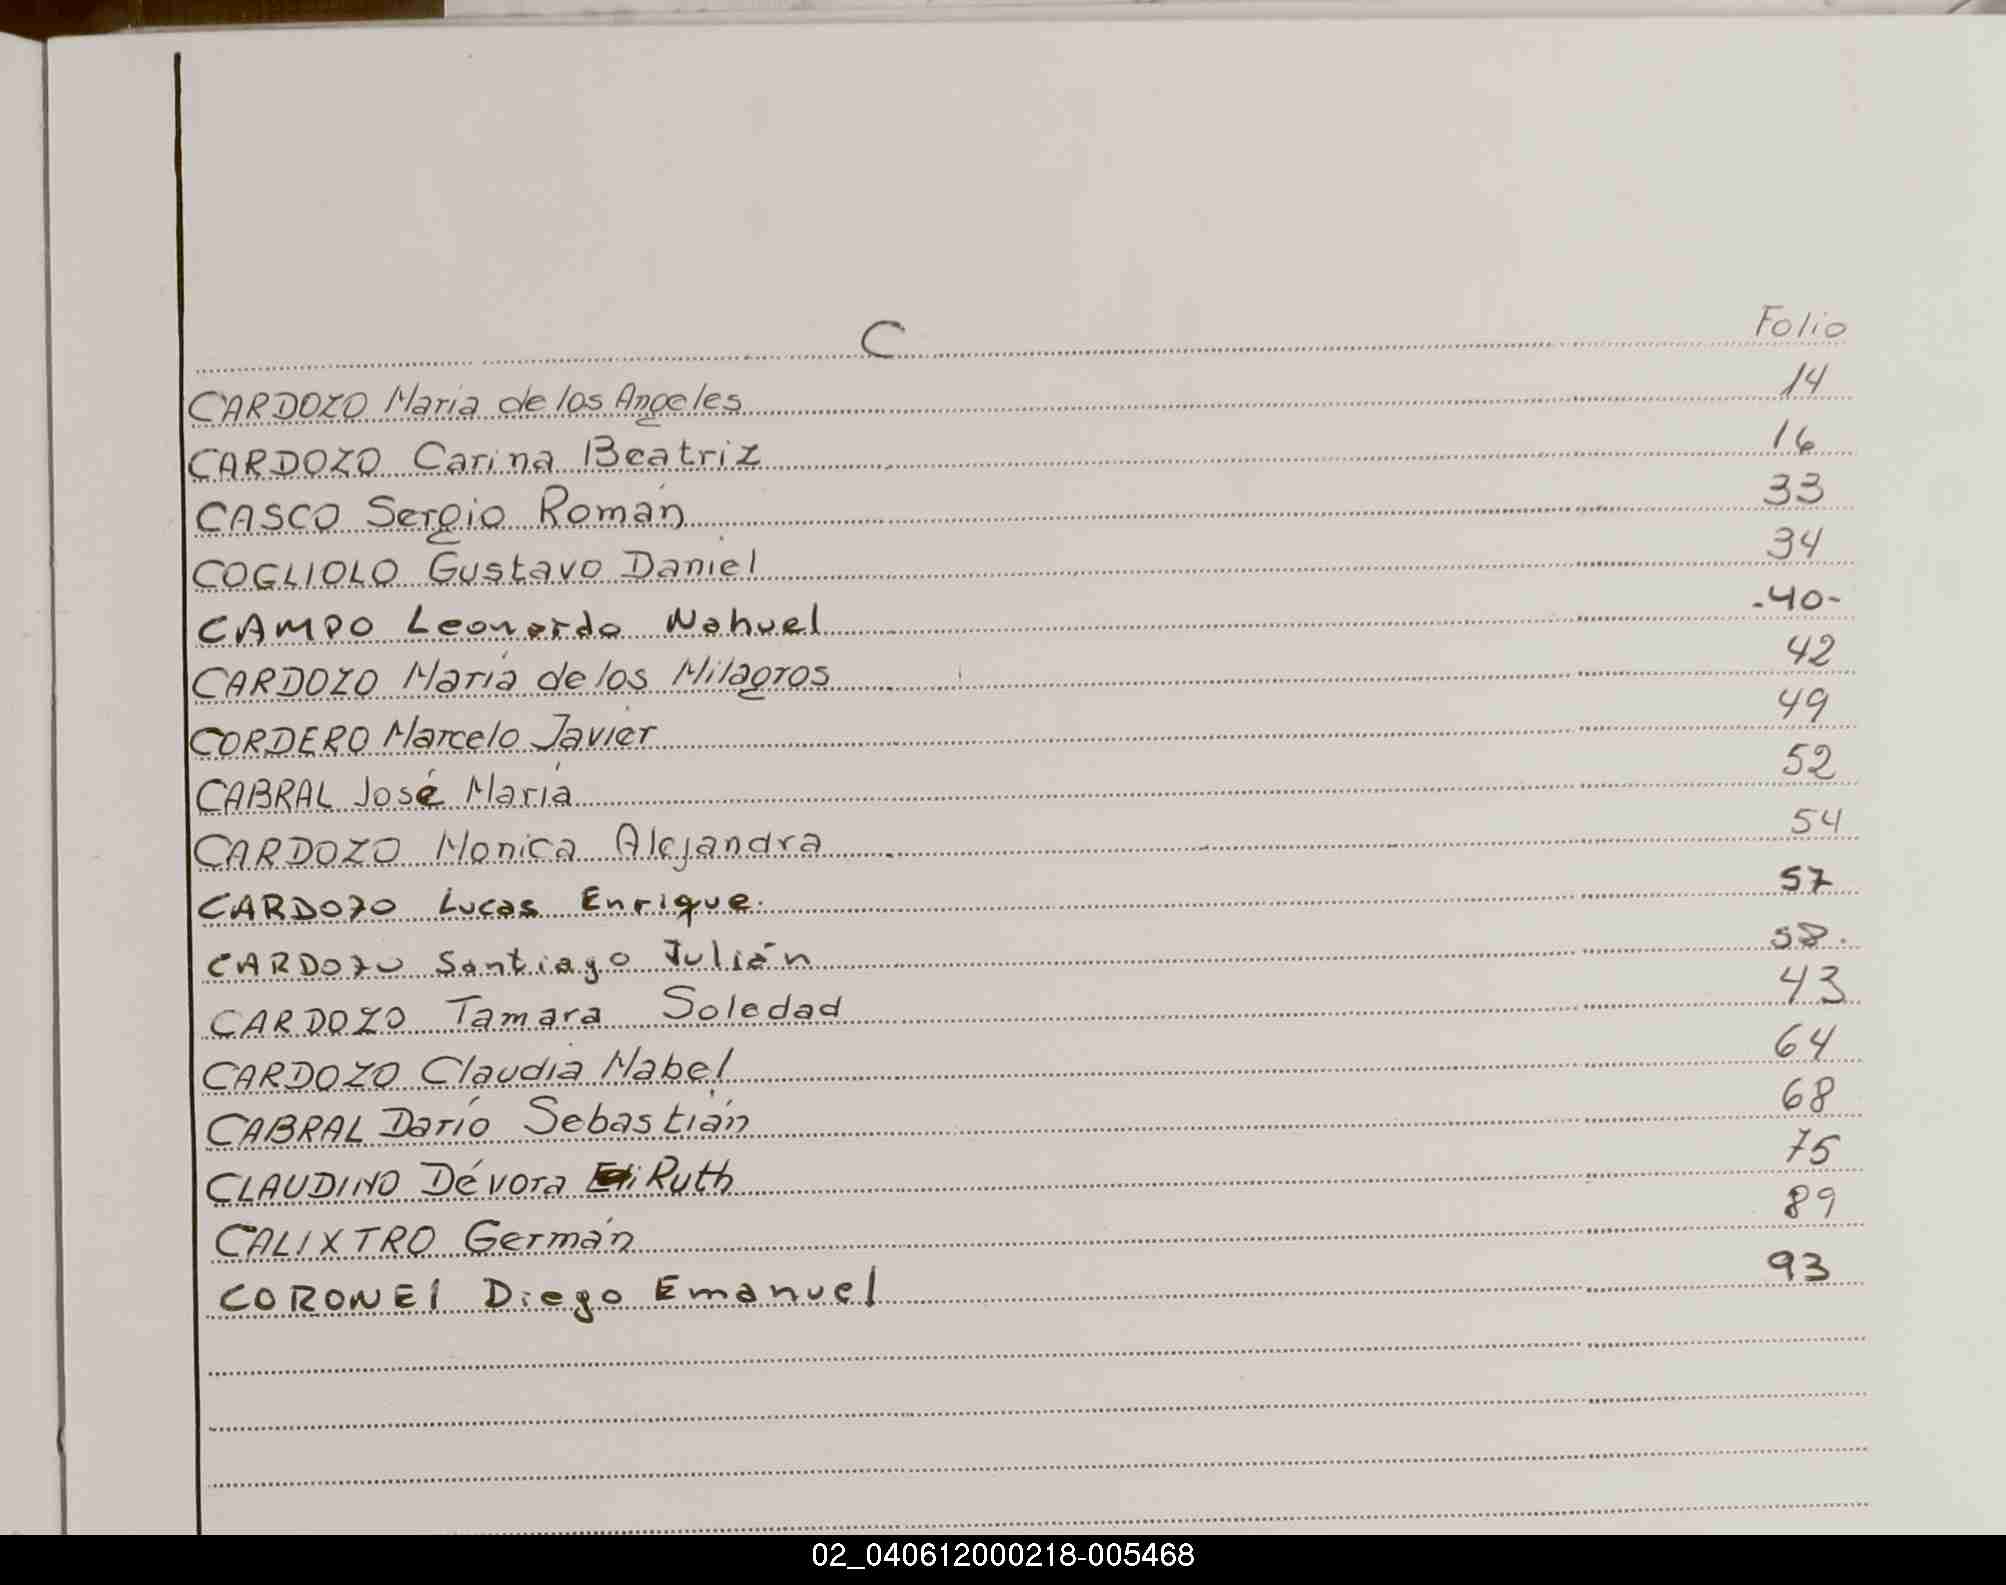 C Folio
CARDOZO María de los Angeles 14
CARDOZO Carina Beatriz 16
CASCO Sergio Román 33
COGLIOLO Gustavo Daniel 34
CAMPO Leonardo Nahuel -40-
CARDOZO María de los Milagros 42
CORDERO Marcelo Javier 49
CABRAL José María 52
CARDOZO Monica Alejandra 54
CARDOZO Lucas Enrique. 57
CARDOZO Santiago Julián 58.
CARDOZO Tamara Soledad 43
CARDOZO Claudia Mabel 64
CABRAL Darío Sebastián 68
CLAUDINO Dévora Ruth 75
CALIXTRO Germán 89
CORONEl Diego Emanuel 93
02_040612000218-005468